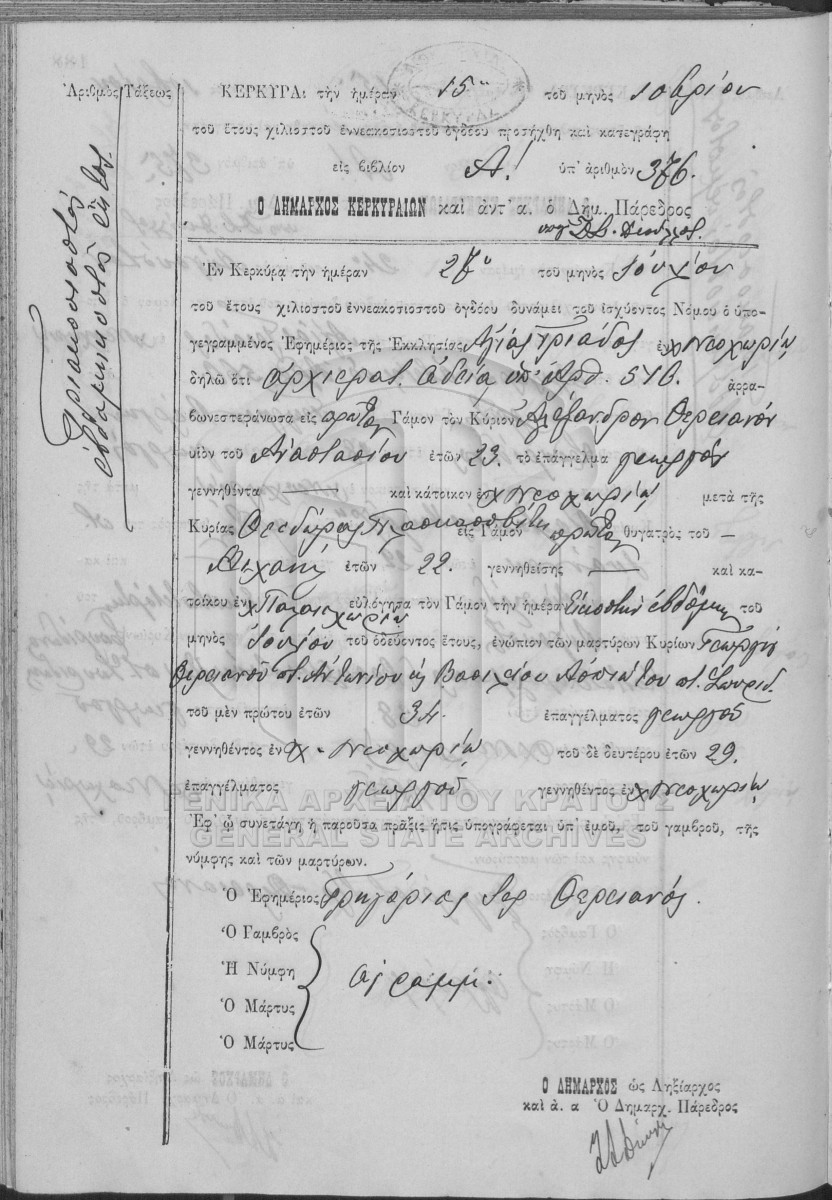 Ἀριθμὸς Τάξεως
Τριακοσιοστὸς
ἑβδομηκοστὸς ἕκτος
ΚΕΡΚΥΡΑ: τὴν ἡμέραν 15ην τοῦ μηνὸς 10βρίου
τοῦ ἔτους χιλιοστοῦ ἐννεακοσιοστοῦ ὀγδόου προσήχθη καὶ κατεγράφη
εἰς βιβλίον Α! ὑπ' ἀριθμὸν 376.
Ο ΔΗΜΑΡΧΟΣ ΚΕΡΚΥΡΑΙΩΝ καὶ ἀντ' α. ὁ Δημ. Πάρεδρος
Ἐν Κερκύρᾳ τὴν ἡμέραν 27ην τοῦ μηνὸς Ἰουνίου
τοῦ ἔτους χιλιοστοῦ ἐννεακοσιοστοῦ ὀγδόου δυνάμει τοῦ ἰσχύοντος Νόμου ὁ ὑπο-
γεγραμμένος Ἐφημέριος τῆς Ἐκκλησίας Ἁγίας Τριάδος ἐν χ. Νεοχωρίῳ
δηλῶ ὅτι ἀρχιερατ. ἀδείᾳ ὑπ' ἀρθ. 516. ἀρρα-
βωνεστεφάνωσα εἰς πρῶτον Γάμον τὸν Κύριον Ἀλέξανδρον Θερειανὸν
υἱὸν τοῦ Ἀναστασίου ἐτῶν 23. τὸ ἐπάγγελμα γεωργὸν
γεννηθέντα — καὶ κάτοικον ἐν χ. Νεοχωρίῳ μετὰ τῆς
Κυρίας Θεοδώρας εἰς Γάμον πρῶτον θυγατρὸς τοῦ —
Μιχαὴλ ἐτῶν 22. γεννηθείσης — καὶ κα-
τοίκου ἐν χ. Παλαιοχωρίῳ εὐλόγησα τὸν Γάμον τὴν ἡμέραν Εἰκοστὴν ἑβδόμην τοῦ
μηνὸς Ἰουνίου τοῦ ὁδεύοντος ἔτους, ἐνώπιον τῶν μαρτύρων Κυρίων Γεωργίου
Θερειανοῦ π. Ἀντωνίου κ Βασιλείου Ἀσπιώτου π. Σπυρίδ.
τοῦ μὲν πρώτου ἐτῶν 34. ἐπαγγέλματος γεωργοῦ
γεννηθέντος ἐν χ. Νεοχωρίῳ τοῦ δὲ δευτέρου ἐτῶν 29.
ἐπαγγέλματος γεωργοῦ γεννηθέντος ἐν χ. Νεοχωρίῳ
ΓΕΝΙΚΑ ΑΡΧΕΙΑ ΤΟΥ ΚΡΑΤΟΥΣ
GENERAL STATE ARCHIVES
Ἐφ' ᾧ συνετάγη ἡ παροῦσα πρᾶξις ἥτις ὑπογράφεται ὑπ' ἐμοῦ, τοῦ γαμβροῦ, τῆς
νύμφης καὶ τῶν μαρτύρων.
Ὁ Ἐφημέριος Γρηγόριος Ἱερ Θερειανός.
Ὁ Γαμβρὸς
Ἡ Νύμφη
ἀγραμμ.
Ὁ Μάρτυς
Ὁ Μάρτυς
Ο ΔΗΜΑΡΧΟΣ ὡς Ληξίαρχος
καὶ ἀ. α Ὁ Δημαρχ. Πάρεδρος